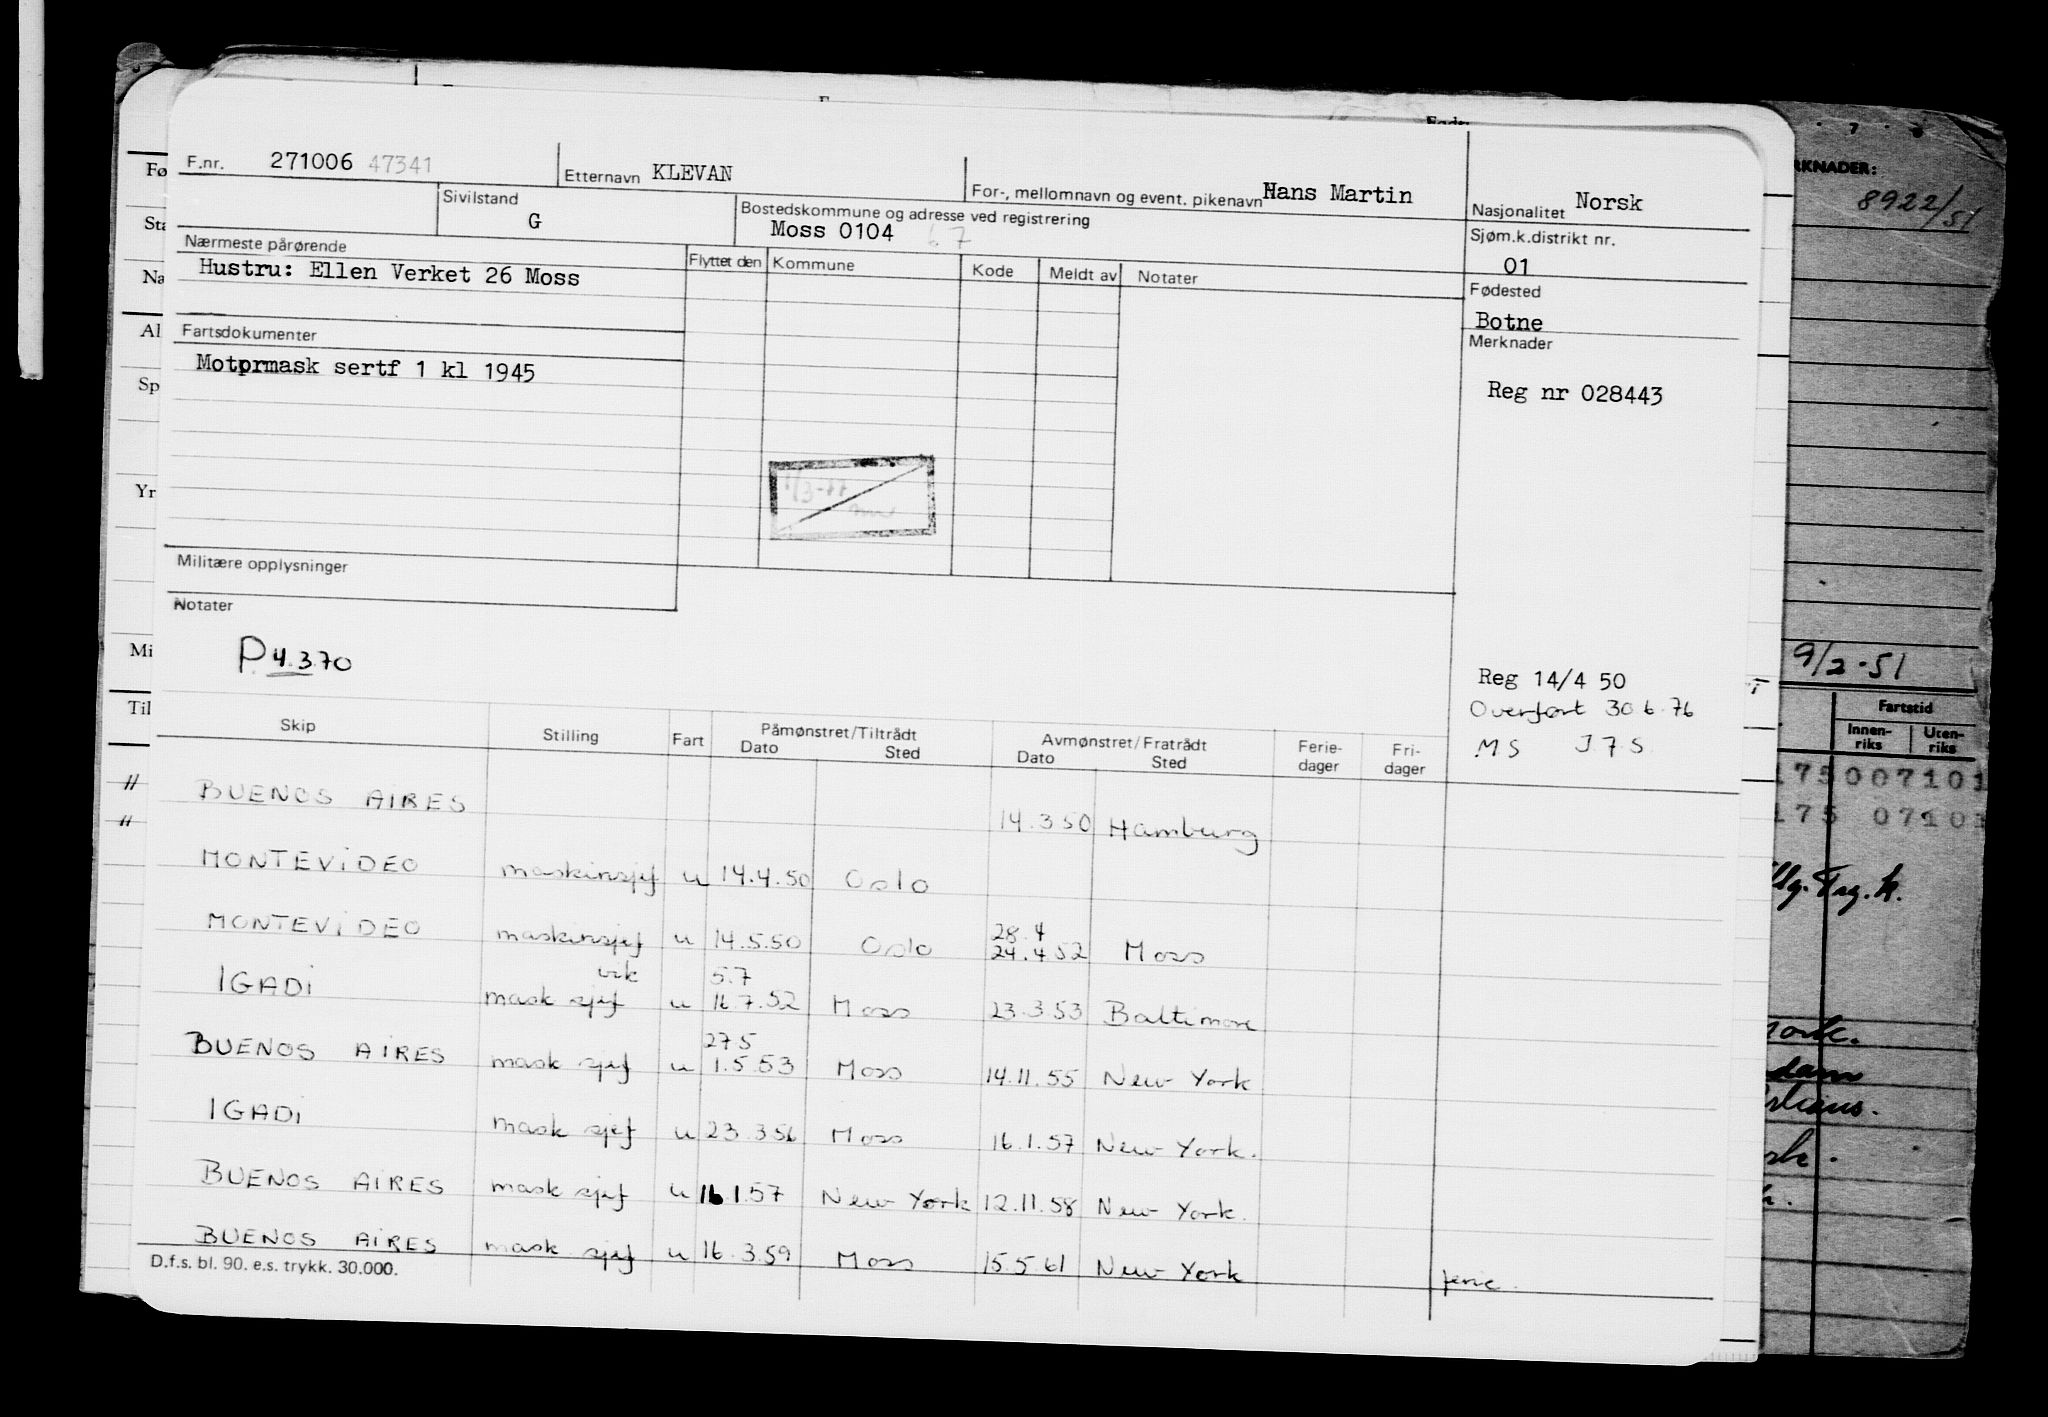 F.nr. 271006 47341 Etternavn KLEVAN For-, mellomnavn og event. pikenavn Hans Martin Nasjonalitet Norsk
Sivilstand G Bostedskommune og adresse ved registrering Moss 0104 67 Sjøm.k.distrikt nr. 01
Nærmeste pårørende Flyttet den Kommune Kode Meldt av Notater Fødested
Hustru: Ellen Verket 26 Moss
Botne
Fartsdokumenter Merknader
Motormask sertf 1 kl 1945 Reg nr 028443
Militære opplysninger
Notater
P. 4.3.70
Reg 14/4 50
Overført 30 6.76
MS J 7 S.
Skip Stilling Fart Påmønstret/Tiltrådt Dato Sted Avmønstret/Fratrådt Dato Sted Ferie-dager Fri-dager
BUENOS AIRES 14.3 50 Hamburg
MONTEVIDEO maskinsjef u 14.4.50 Oslo
MONTEVIDEO maskinsjef u 14.5.50 Oslo 28.4 24.4 52 Moss
IGADI vik mask sjef u 5.7 16.7.52 Moss 23.3 53 Baltimore
BUENOS AIRES mask sjef u 27 5 1.5.53 Moss 14.11.55 New York
IGADI mask sjef u 23.3 56 Moss 16.1.57 New York.
BUENOS AIRES mask sjef u 16 1.57 New York 12.11.58 New York.
BUENOS AIRES mask sjef u 16.3.59 Moss 15.5 61 New York ferie.
D.f.s. bl. 90. e.s. trykk. 30.000.
Fø
Sta
Na
Al
Sp
Yr
Mi
Til
"
"
7 8
RKNADER:
8922/51
9/2-51
Fartstid
Innen-riks Uten-riks
175007101
175 07101